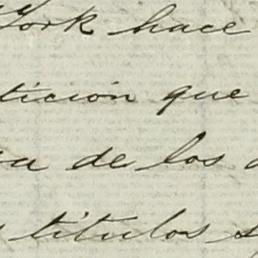 York hace
tición que
de los
títulos